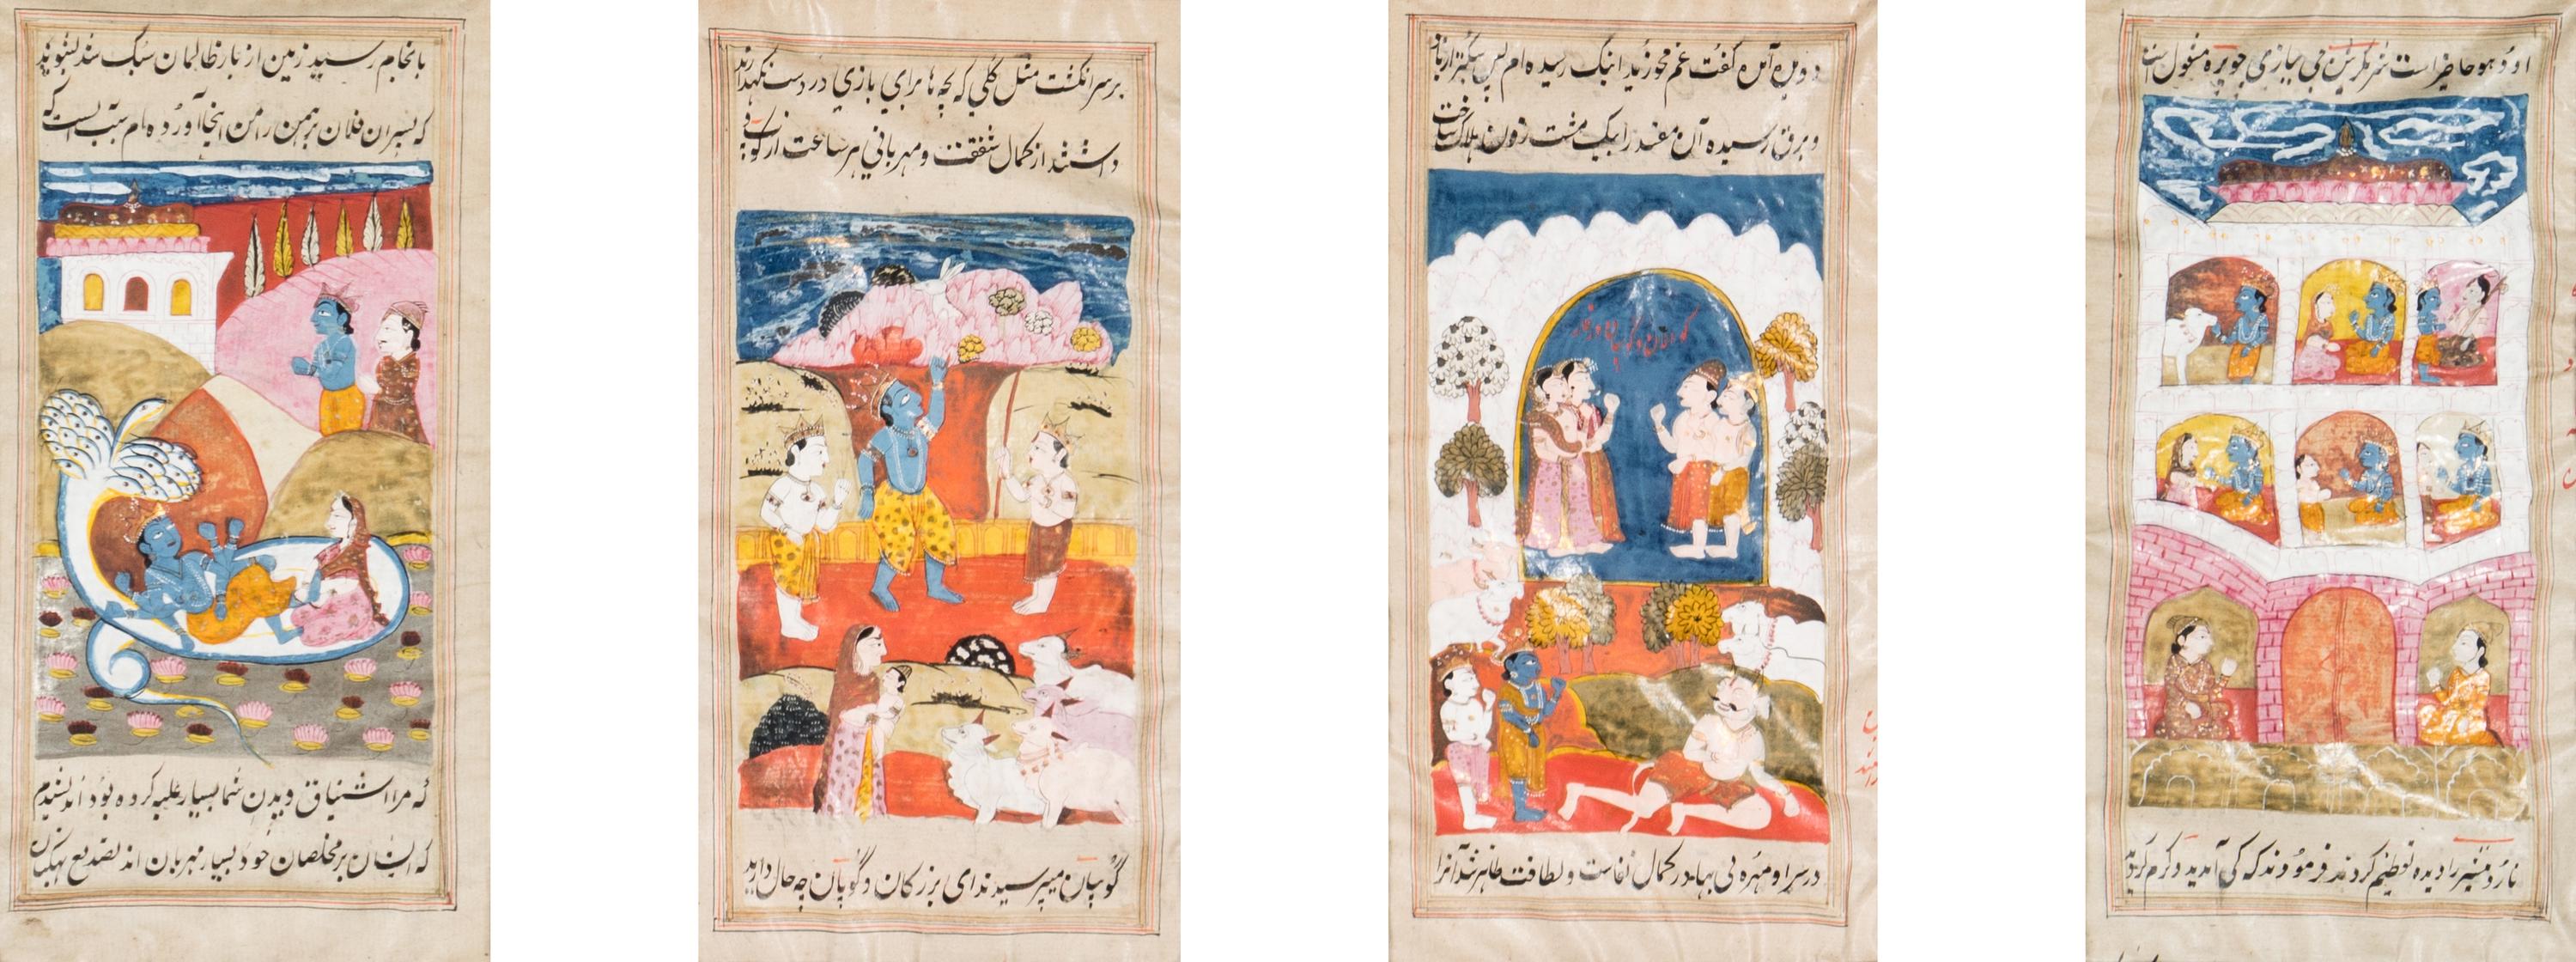 بانجام رسید زمین از بار ظالمان سبک شد بشنوید
که پسران فلان برهمن را من اینجا آورده ام سبب آنست که
که مرا اشتیاق دیدن شما بسیار غلبه کرده بود آمد
که ایشان بر مخلصان خود بسیار مهربان اند تصدیع
بر سر انگشت مثل گلی که بچه ها برای بازی در دست نگهدارند
داشتند از کمال شفقت و مهربانی هر ساعت از
گوپیان میپرسیدند ای بزرگان و گوپان چه حال دارید
گفت غم مخورید اینک رسیده ام پس
و برق رسیده آن مفسد را بیک مشت زدن هلاک ساخت
در سر او مهره بی بها در کمال نفاست و لطافت ظاهر شد آنرا
اودهو حاضر است سری کرشن جی ببازی چوپره مشغول است
نارد منیسر را دیده تعظیم کردند فرمودند که کی آمدید و کرم کردید